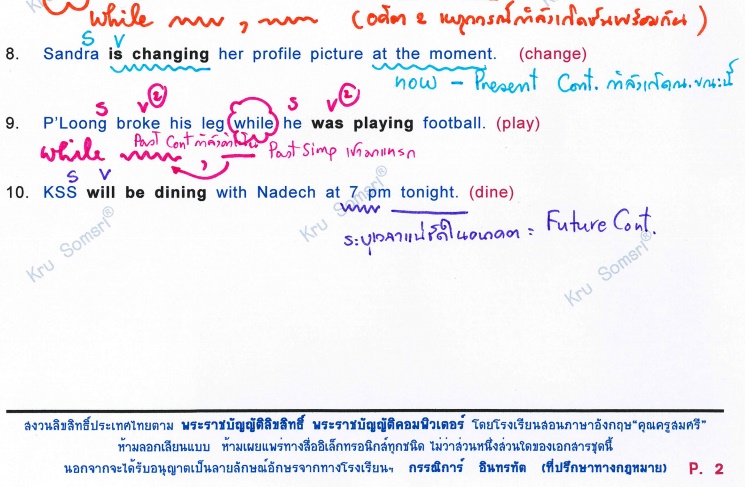 while ~~~ , ~~~ (อดีต 2 เหตุการณ์กำลังเกิดขึ้นพร้อมกัน)
S V
8. Sandra is changing her profile picture at the moment. (change)
now - Present Cont. กำลังเกิดณ.ขณะนี้
S V② S V②
9. P'Loong broke his leg while he was playing football. (play)
while Past Cont กำลังดำเนิน , Past Simp เข้ามาแทรก
S V
10. KSS will be dining with Nadech at 7 pm tonight. (dine)
ระบุเวลาแน่ชัดในอนาคต = Future Cont.
Kru Somsri®
Kru Somsri®
Kru Somsri®
สงวนลิขสิทธิ์ประเทศไทยตาม พระราชบัญญัติลิขสิทธิ์ พระราชบัญญัติคอมพิวเตอร์ โดยโรงเรียนสอนภาษาอังกฤษ"คุณครูสมศรี"
ห้ามลอกเลียนแบบ ห้ามเผยแพร่ทางสื่ออิเล็กทรอนิกส์ทุกชนิด ไม่ว่าส่วนหนึ่งส่วนใดของเอกสารชุดนี้
นอกจากจะได้รับอนุญาตเป็นลายลักษณ์อักษรจากทางโรงเรียนฯ กรรณิการ์ อินทรทัต (ที่ปรึกษาทางกฎหมาย) P. 2